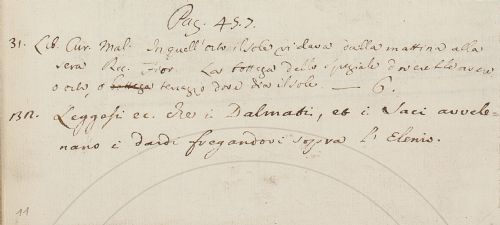 Pag. 457.
31. Lib. Cur. Mal. In quell'orto il sole vi dava dalla mattina alla
sera Ric. Fior. La bottega dello speziale dovrebbe avere
o orto, o bottega terrazzo dove dia il sole. — 6.
132. Leggesi ec. che i Dalmati, et i Saci avvele-
nano i dardi fregandovi soppra l'Elenio.
11